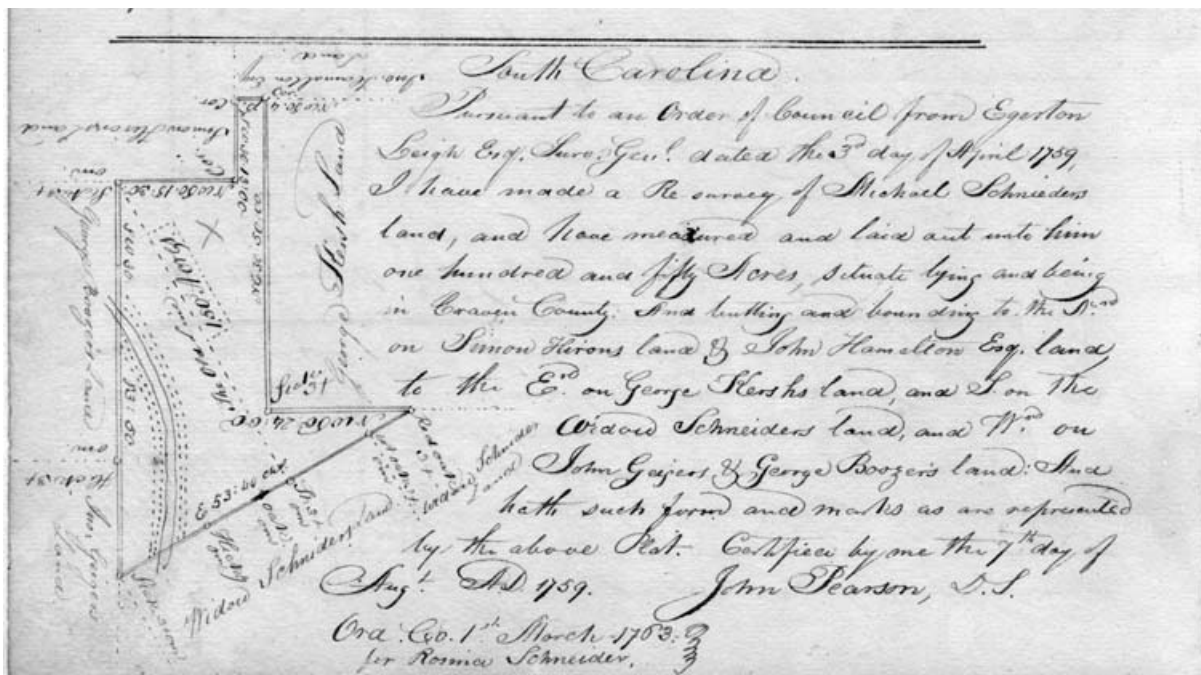 South Carolina.
Pursuant to an Order of Council from Egerton
Leigh Esq. Surv: Genl. dated the 3d day of April 1759,
I have made a Re-survey of Michael Schnieders
land, and have measured and laid out unto him
one hundred and fifty Acres, situate lying and being
in Craven County: And butting and bounding to the Nrd
on Simon Hirons land & John Hamelton Esq. land,
to the Erd on George Kershs land, and S. on the
Widow Schneiders land, and Wd. on
John Geigers & George Boozers land: And
hath such form and marks as are represented
by the above Plat. Certified by me the 7th day of
Augt. AD 1759. John Pearson, D. S.
Ord. Co. 1st March 1763:
for Rosina Schneider.
Jno. Hamelton Esq.
Land
Simon Hirons land
George Kersh Land
George Boozers land
Jno. Geigers
Land
150
E 53:40
Widow Schneiders Land
Widow Schnider
Land
Red Oak
3x